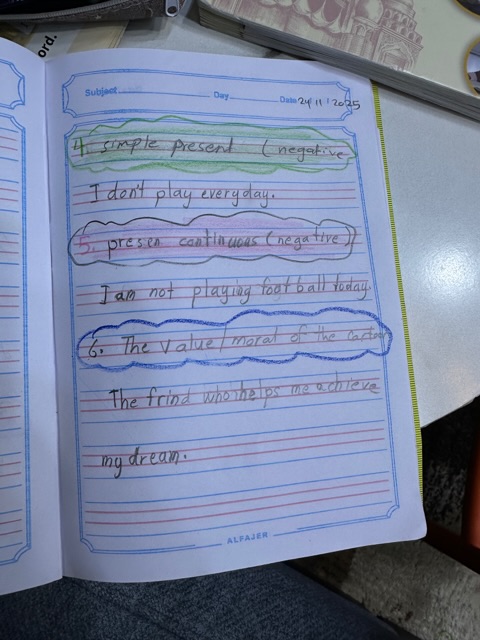 ord.
Subject Day Date 24/11/2025
4. simple present (negative
I don't play everyday.
5. presen continuous (negative)
I am not playing foot ball today.
6. The value/moral of the cartoon
The frind who helps me achieve
my dream.
ALFAJER